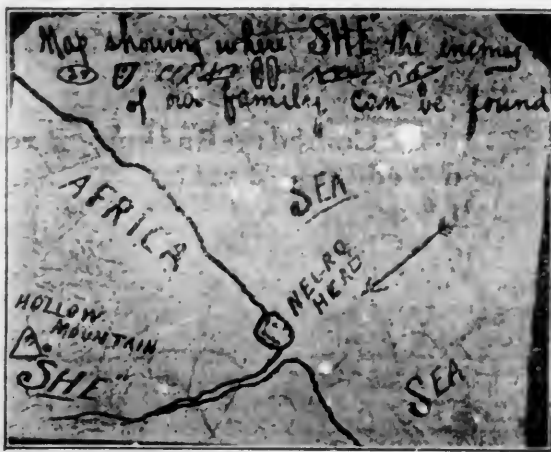 Map showing where "SHE" the enemy
of our family can be found
AFRICA
SEA
NEGRO
HEAD
HOLLOW
MOUNTAIN
"SHE"
SEA